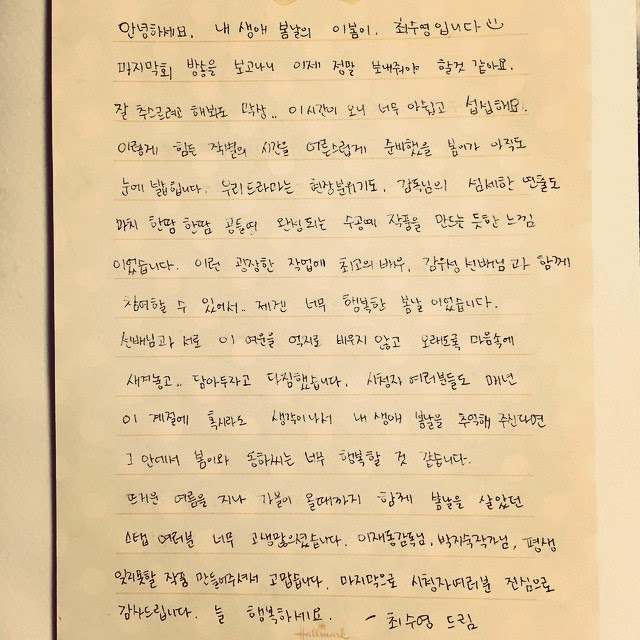 안녕하세요. 내 생애 봄날의 이봄이. 최수영입니다
마지막회 방송을 보고나니 이제 정말 보내줘야 할것 같아요.
잘 추스르려고 해봐도 막상.. 이시간이 오니 너무 아쉽고 섭섭해요.
이렇게 힘든 작별의 시간을 어른스럽게 준비했을 봄이가 아직도
눈에 밟힙니다. 우리드라마는 현장분위기도, 감독님의 섬세한 연출도
마치 한땀 한땀 공들여 완성되는 수공예 작품을 만드는 듯한 느낌
이었습니다. 이런 굉장한 작업에 최고의 배우, 감우성선배님과 함께
참여할 수 있어서.. 제겐 너무 행복한 봄날이었습니다.
선배님과 서로 이 여운을 억지로 비우지 않고 오래도록 마음속에
새겨놓고.. 담아두자고 다짐했습니다. 시청자 여러분들도 매년
이 계절에 혹시라도 생각이나서 내 생애 봄날을 추억해 주신다면
그 안에서 봄이와 동하씨는 너무 행복할 것 같습니다.
뜨거운 여름을 지나 가을이 올때까지 함께 봄날을 살았던
스탭 여러분 너무 고생많으셨습니다. 이재동감독님, 박지숙작가님, 평생
잊지못할 작품 만들어주셔서 고맙습니다. 마지막으로 시청자여러분 진심으로
감사드립니다. 늘 행복하세요. - 최수영 드림
Hallmark